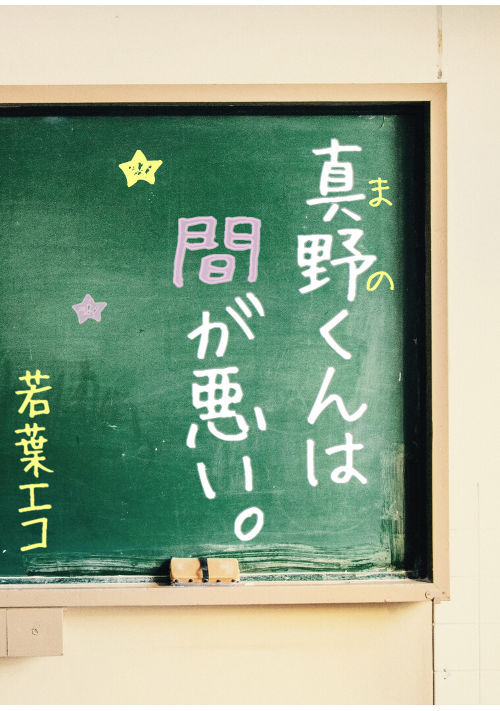 真野くんは
まの
間が悪い。
若葉エコ